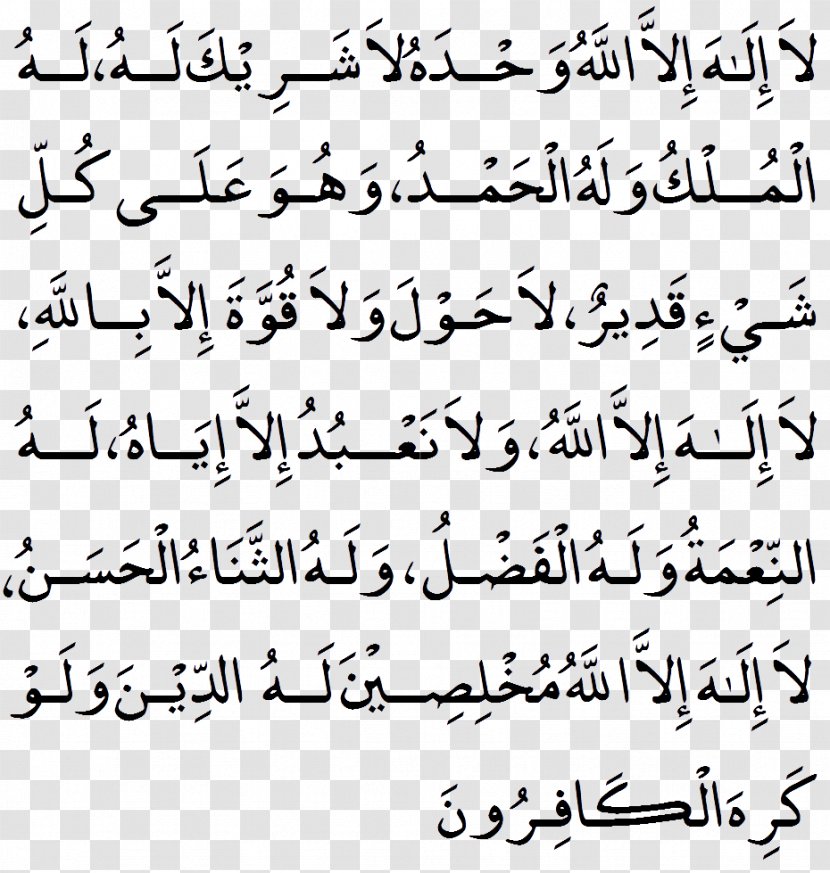 لاَ إِلَـٰهَ إِلاَّ اللَّهُ وَحْـدَهُ لاَ شَـرِيْكَ لَـهُ، لَـهُ
الْمُـلْكُ وَلَهُ الْحَمْـدُ، وَهُـوَ عَلَـى كُلِّ
شَـيْءٍ قَدِيرٌ، لاَ حَوْلَ وَلاَ قُوَّةَ إِلاَّ بِـاللَّهِ،
لاَ إِلَـٰهَ إِلاَّ اللَّهُ، وَلاَ نَعْـبُدُ إِلاَّ إِيَـاهُ، لَـهُ
النِّعْمَةُ وَلَـهُ الْفَضْـلُ، وَلَـهُ الثَّنَاءُ الْحَسَـنُ،
لاَ إِلَـٰهَ إِلاَّ اللَّهُ مُخْلِصِـيْنَ لَـهُ الدِّيْـنَ وَلَـوْ
كَرِهَ الْكَـافِرُونَ